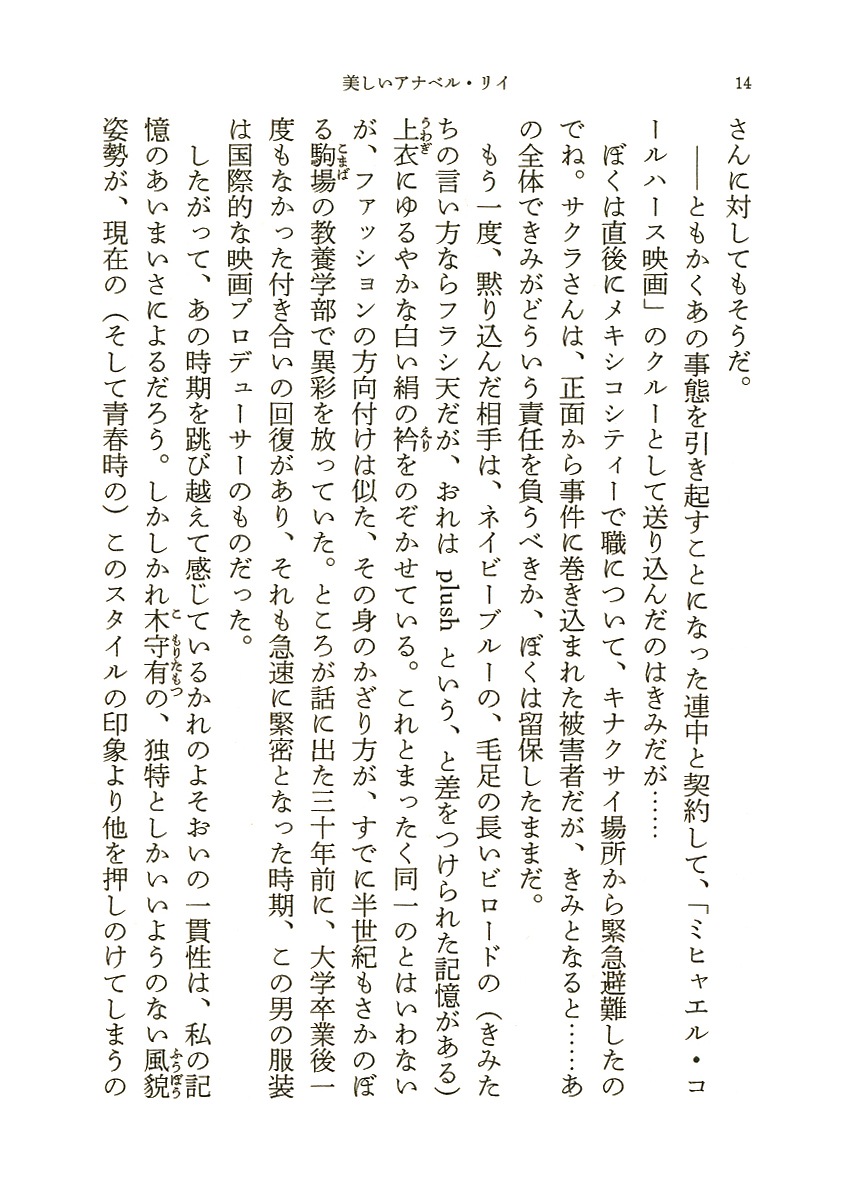 14
美しいアナベル・リイ
さんに対してもそうだ。
――ともかくあの事態を引き起すことになった連中と契約して、「ミヒャエル・コ
ールハース映画」のクルーとして送り込んだのはきみだが……
ぼくは直後にメキシコシティーで職について、キナクサイ場所から緊急避難したの
でね。サクラさんは、正面から事件に巻き込まれた被害者だが、きみとなると……あ
の全体できみがどういう責任を負うべきか、ぼくは留保したままだ。
もう一度、黙り込んだ相手は、ネイビーブルーの、毛足の長いビロードの（きみた
ちの言い方ならフラシ天だが、おれは plush という、と差をつけられた記憶がある）
上衣にゆるやかな白い絹の衿をのぞかせている。これとまったく同一のとはいわない
が、ファッションの方向付けは似た、その身のかざり方が、すでに半世紀もさかのぼ
る駒場の教養学部で異彩を放っていた。ところが話に出た三十年前に、大学卒業後一
度もなかった付き合いの回復があり、それも急速に緊密となった時期、この男の服装
は国際的な映画プロデューサーのものだった。
したがって、あの時期を跳び越えて感じているかれのよそおいの一貫性は、私の記
憶のあいまいさによるだろう。しかしかれ木守有の、独特としかいいようのない風貌
姿勢が、現在の（そして青春時の）このスタイルの印象より他を押しのけてしまうの